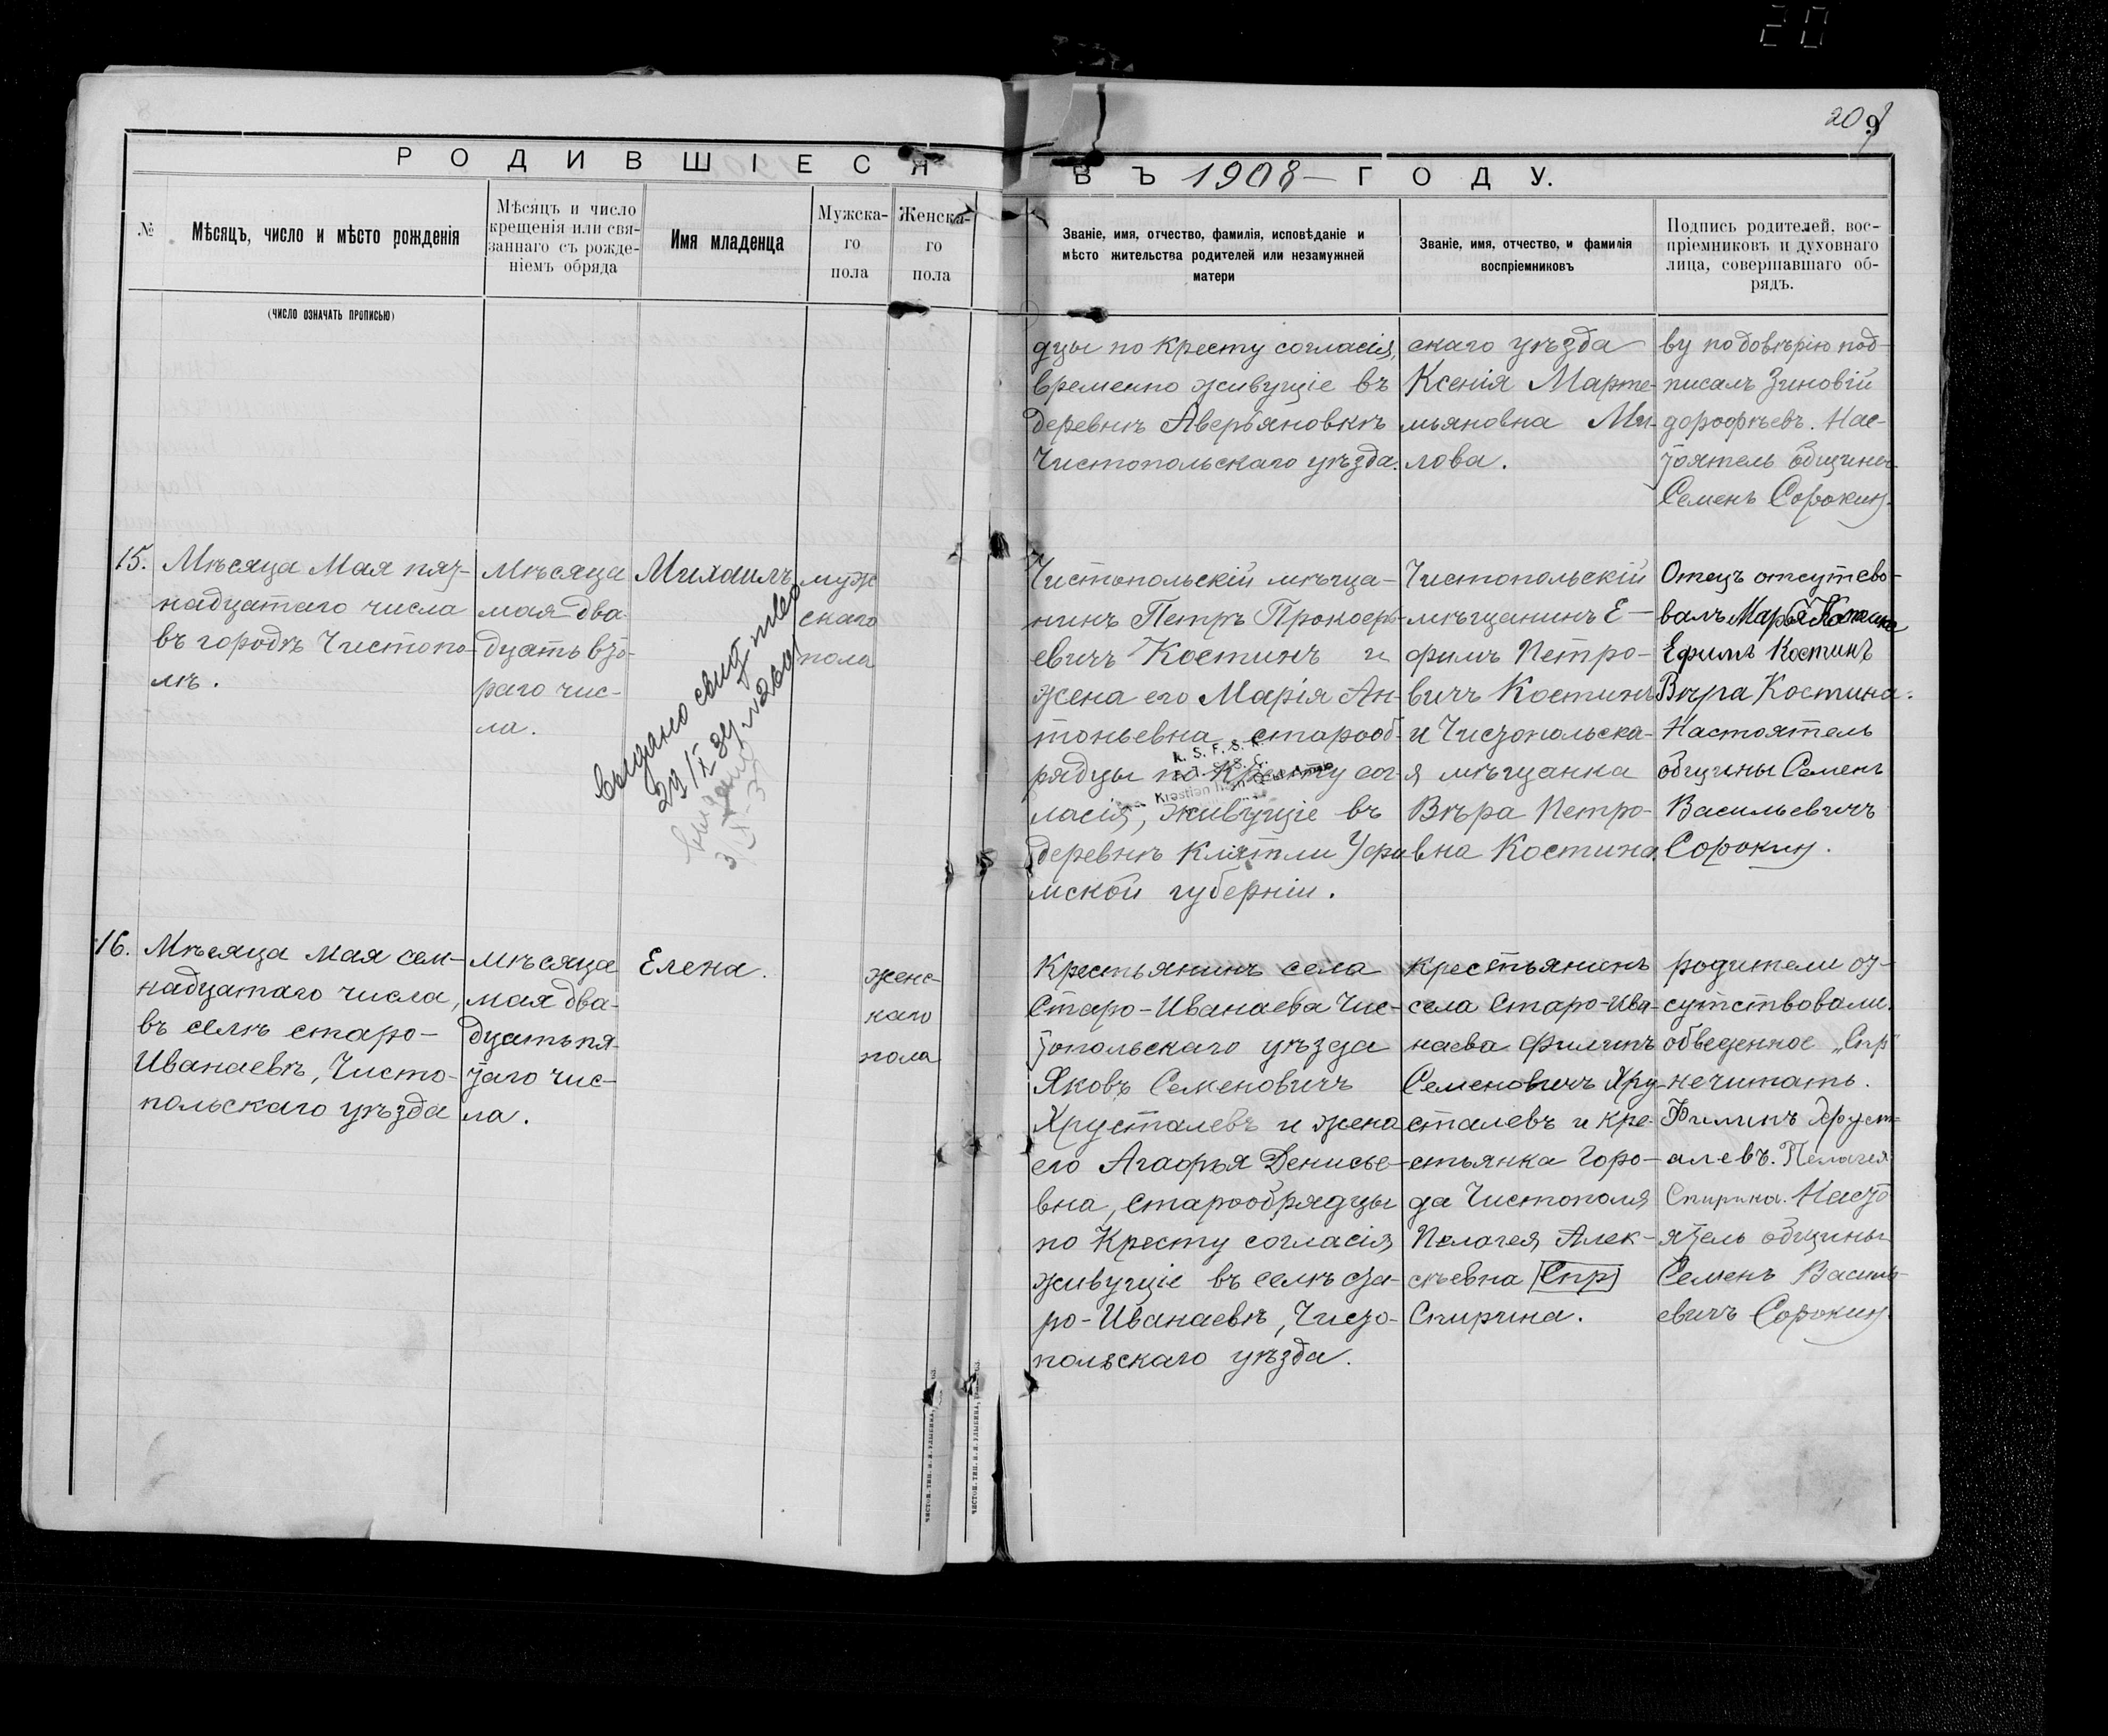 20
20 9
РОДИВШІЕСЯ
ВЪ 1908 ГОДУ.
№
Мѣсяцъ, число и мѣсто рожденія
(число означать прописью)
Мѣсяцъ и число
крещенія или свя-
заннаго съ рожде-
ніемъ обряда
Имя младенца
Мужска-
го
пола
Женска-
го
пола
Званіе, имя, отчество, фамилія, исповѣданіе и
мѣсто жительства родителей или незамужней
матери
Званіе, имя, отчество, и фамилія
воспріемниковъ
Подпись родителей, вос-
пріемниковъ и духовнаго
лица, совершавшаго об-
рядъ.
дцы по Кресту согласія,
временно живущіе въ
деревнѣ Аверьяновкѣ
Чистопольскаго уѣзда.
скаго уѣзда
Ксенія Марте-
мьяновна Ми-
лова.
ву по довѣрію под-
писалъ Зиновій
дорофѣевъ. Нас-
тоятель общины
Семенъ Сорокин.
15.
Мѣсяца Мая пят-
надцатаго числа
въ городѣ Чистопо-
лѣ.
Мѣсяца
мая два-
дцать вто-
раго чис-
ла.
Михаилъ
муж
скаго
пола
выдано свид
29/I 39 г №260
выдано
Чистопольскій мѣща-
нинъ Петръ Прокофь-
евичъ Костинъ и
жена его Марія Ан-
тоньевна старооб-
рядцы по Кресту сог-
ласія, живущіе въ
деревнѣ Клятли Уфи
мской губерніи.
R. S. F. S. R.
Чистопольскій
мѣщанинъ Е-
фимъ Петро-
вичъ Костинъ
и Чистопольска-
я мѣщанка
Вѣра Петро-
вна Костина.
Отецъ отсутство-
валъ Марья Костина
Ефимъ Костинъ
Вѣра Костина.
Настоятель
общины Семенъ
Васильевичъ
Сорокин.
16.
Мѣсяца мая сем-
надцатаго числа,
въ селѣ старо-
Иванаевѣ, Чисто-
польскаго уѣзда
мѣсяца
мая два-
дцать пя-
таго чис-
ла.
Елена.
женс-
каго
пола
Крестьянинъ села
Старо-Иванаева Чис-
топольскаго уѣзда
Яковъ Семеновичъ
Хрусталевъ и жена
его Агафья Денисье-
вна, старообрядцы
по Кресту согласія,
живущіе въ селѣ ста-
ро-Иванаевѣ, Чисто-
польскаго уѣзда.
Крестьянинъ
села Старо-Ива-
наева Филипъ
Семеновичъ Хру-
сталевъ и кре-
стьянка Горо-
да Чистополя
Пелагея Алек-
сѣевна Спр
Спирина.
родители от-
сутствовали.
обведенное „Спр"
не читать.
Филипъ Хруст-
алевъ. Пелагея
Спирина. Насто
ятель общины
Семенъ Василь-
евичъ Сорокин.